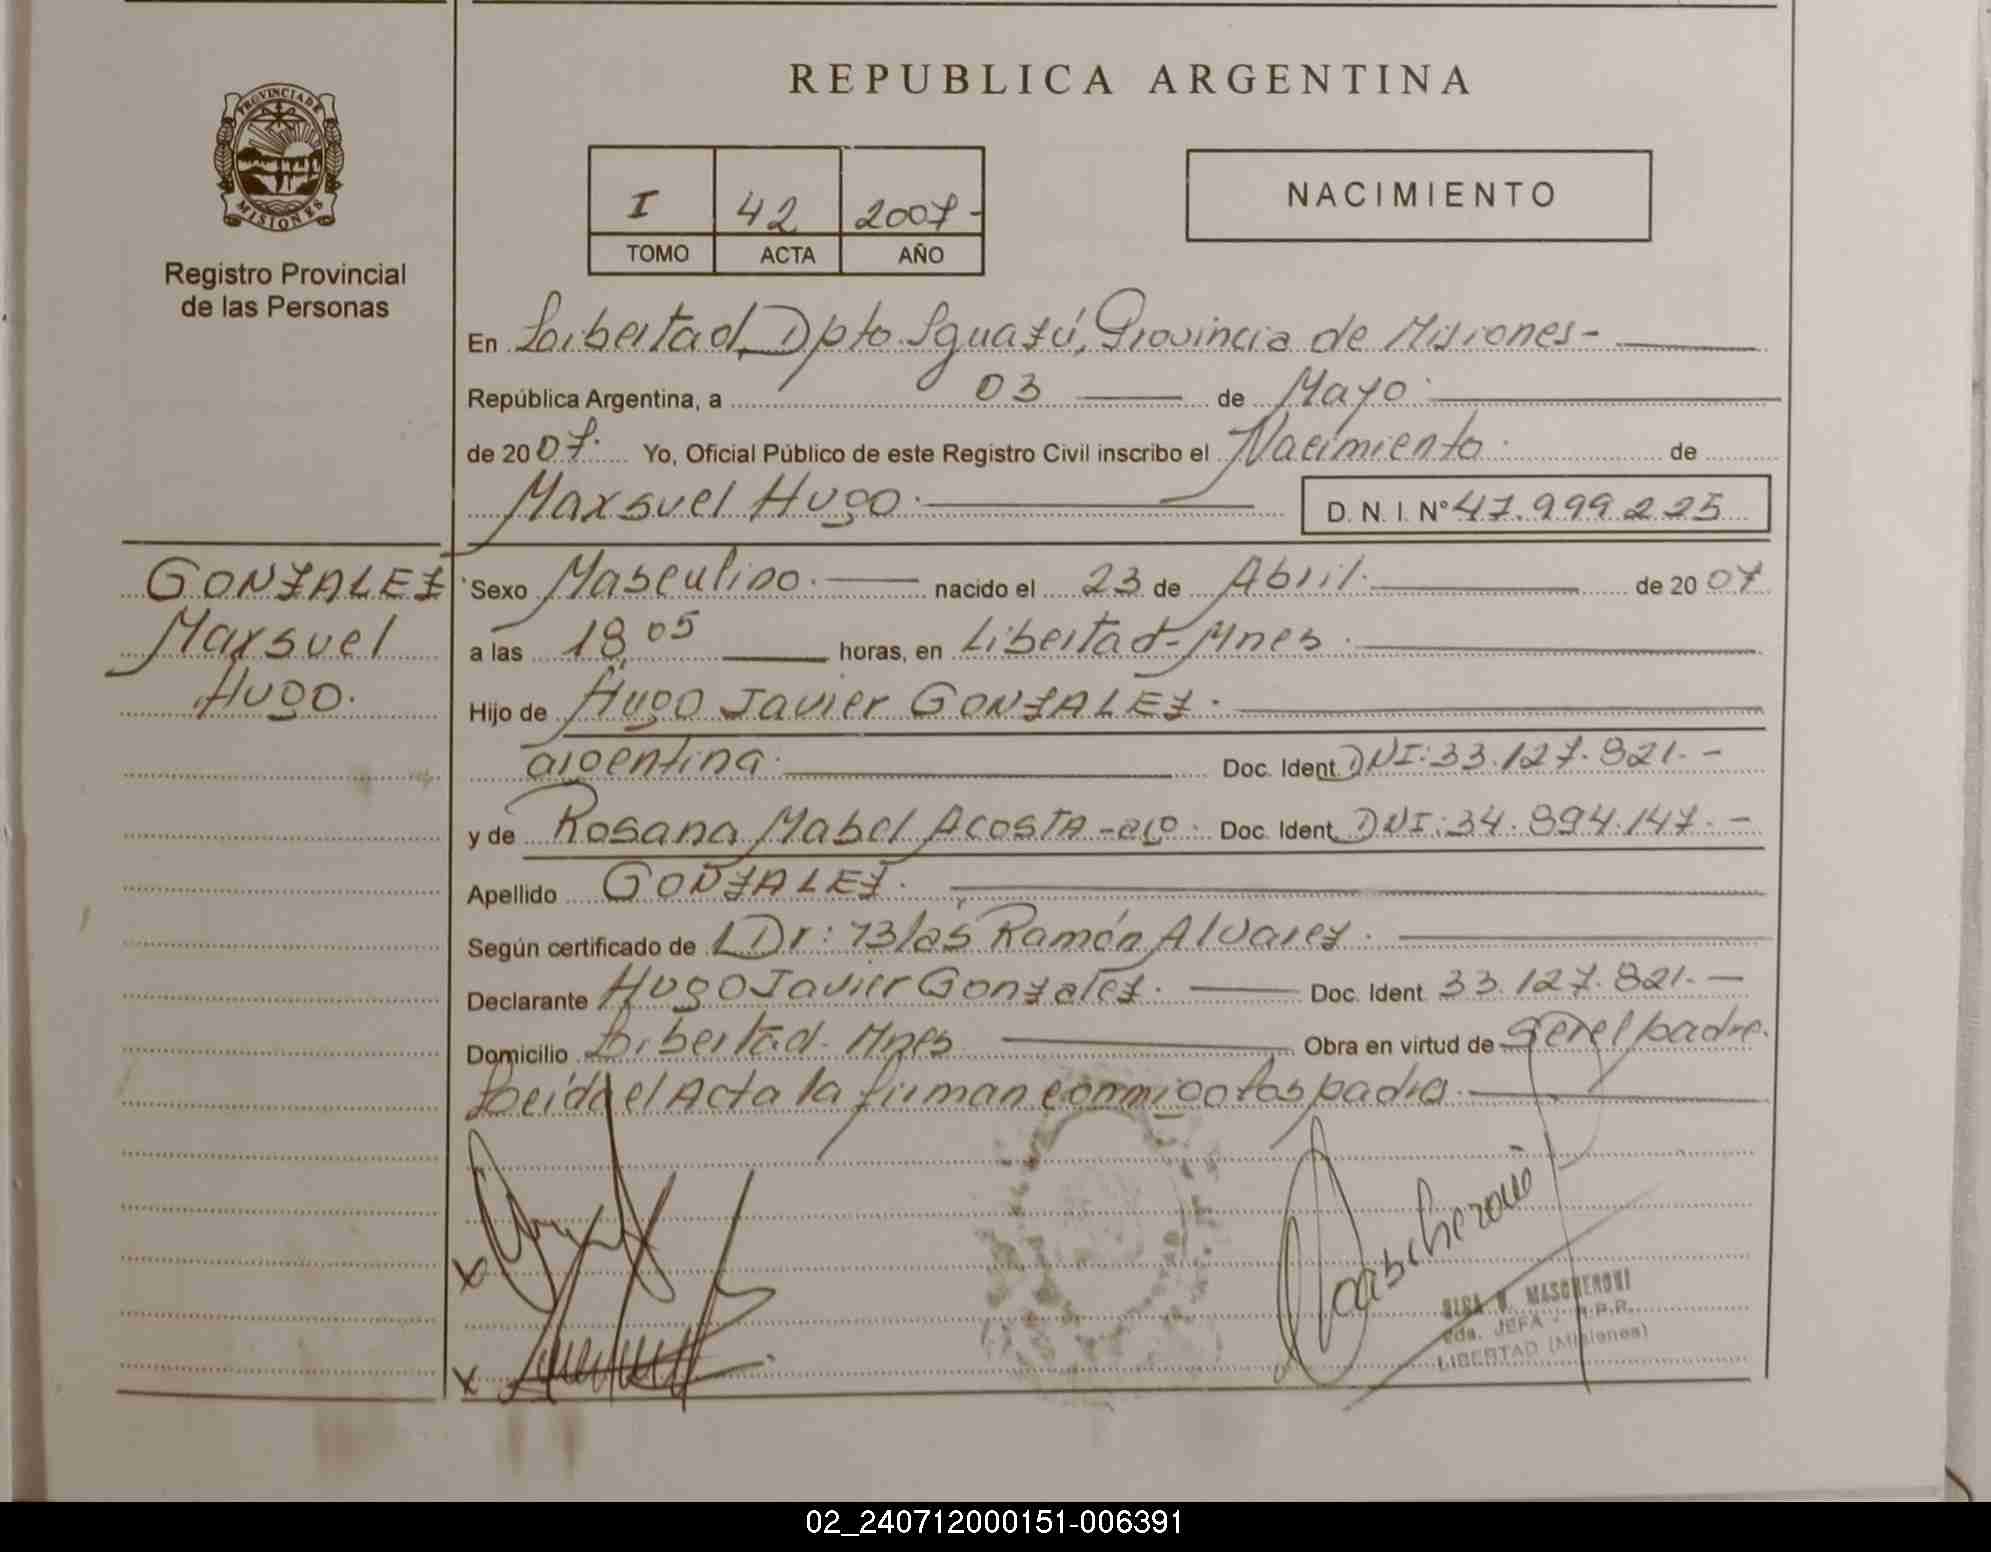 REPUBLICA ARGENTINA
PROVINCIA DE
MISIONES
Registro Provincial
de las Personas
I 42 2007-
TOMO ACTA AÑO
NACIMIENTO
En Libertad, Dpto. Iguazú, Provincia de Misiones-
República Argentina, a 03 de Mayo.
de 2007. Yo, Oficial Público de este Registro Civil inscribo el Nacimiento. de
Maxsuel Hugo. D. N. I. N° 47.999.225
GONZALEZ
Maxsuel
Hugo.
Sexo Masculino. nacido el 23 de Abril. de 2007
a las 18,05 horas, en Libertad-Mnes.
Hijo de Hugo Javier GONZALEZ.
argentina. Doc. Ident. DNI:33.127.821.-
y de Rosana Mabel ACOSTA - Doc. Ident. DNI:34.894.147.-
Apellido GONZALEZ.
Según certificado de Dr: Blás Ramón Alvarez.
Declarante Hugo Javier Gonzalez. Doc. Ident. 33.127.821.-
Domicilio Libertad-Mnes Obra en virtud de ser el padre.
Leída el Acta la firman conmigo los
x
x
Mascheroni
MASCHERONI
JEFA R.P.P.
LIBERTAD (Misiones)
02_240712000151-006391